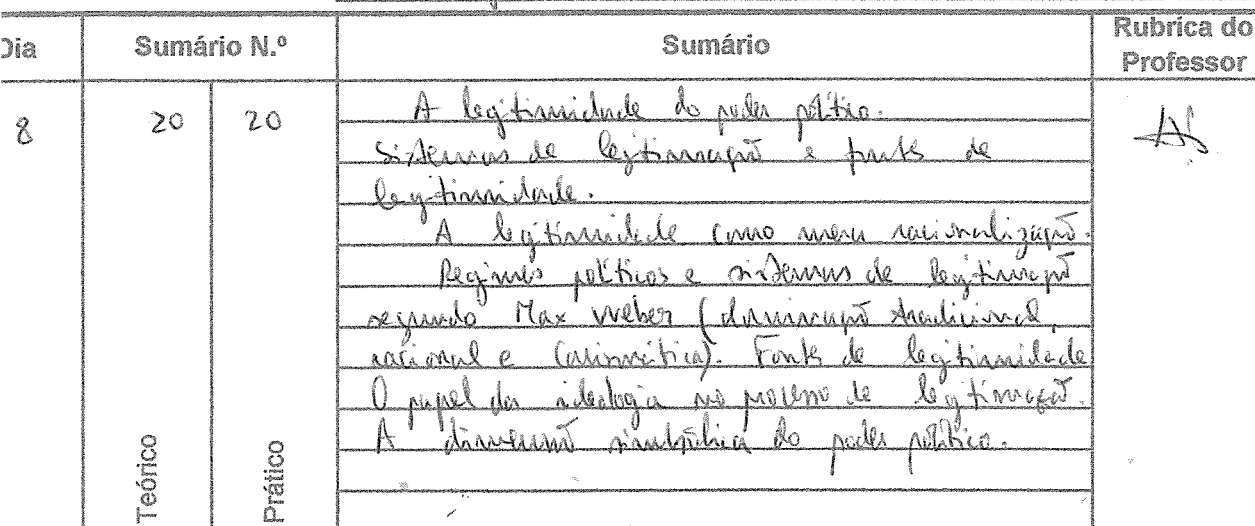 Dia Sumário N.º Sumário Rubrica do Professor
8 20 20 A legitimidade do poder político.
Sistemas de legitimação e fontes de
legitimidade.
A legitimidade como mera racionalização.
Regimes políticos e sistemas de legitimação
segundo Max Weber (dominação tradicional,
racional e carismática). Fontes de legitimidade
O papel da ideologia no processo de legitimação.
A dimensão simbólica do poder político.
Teórico Prático